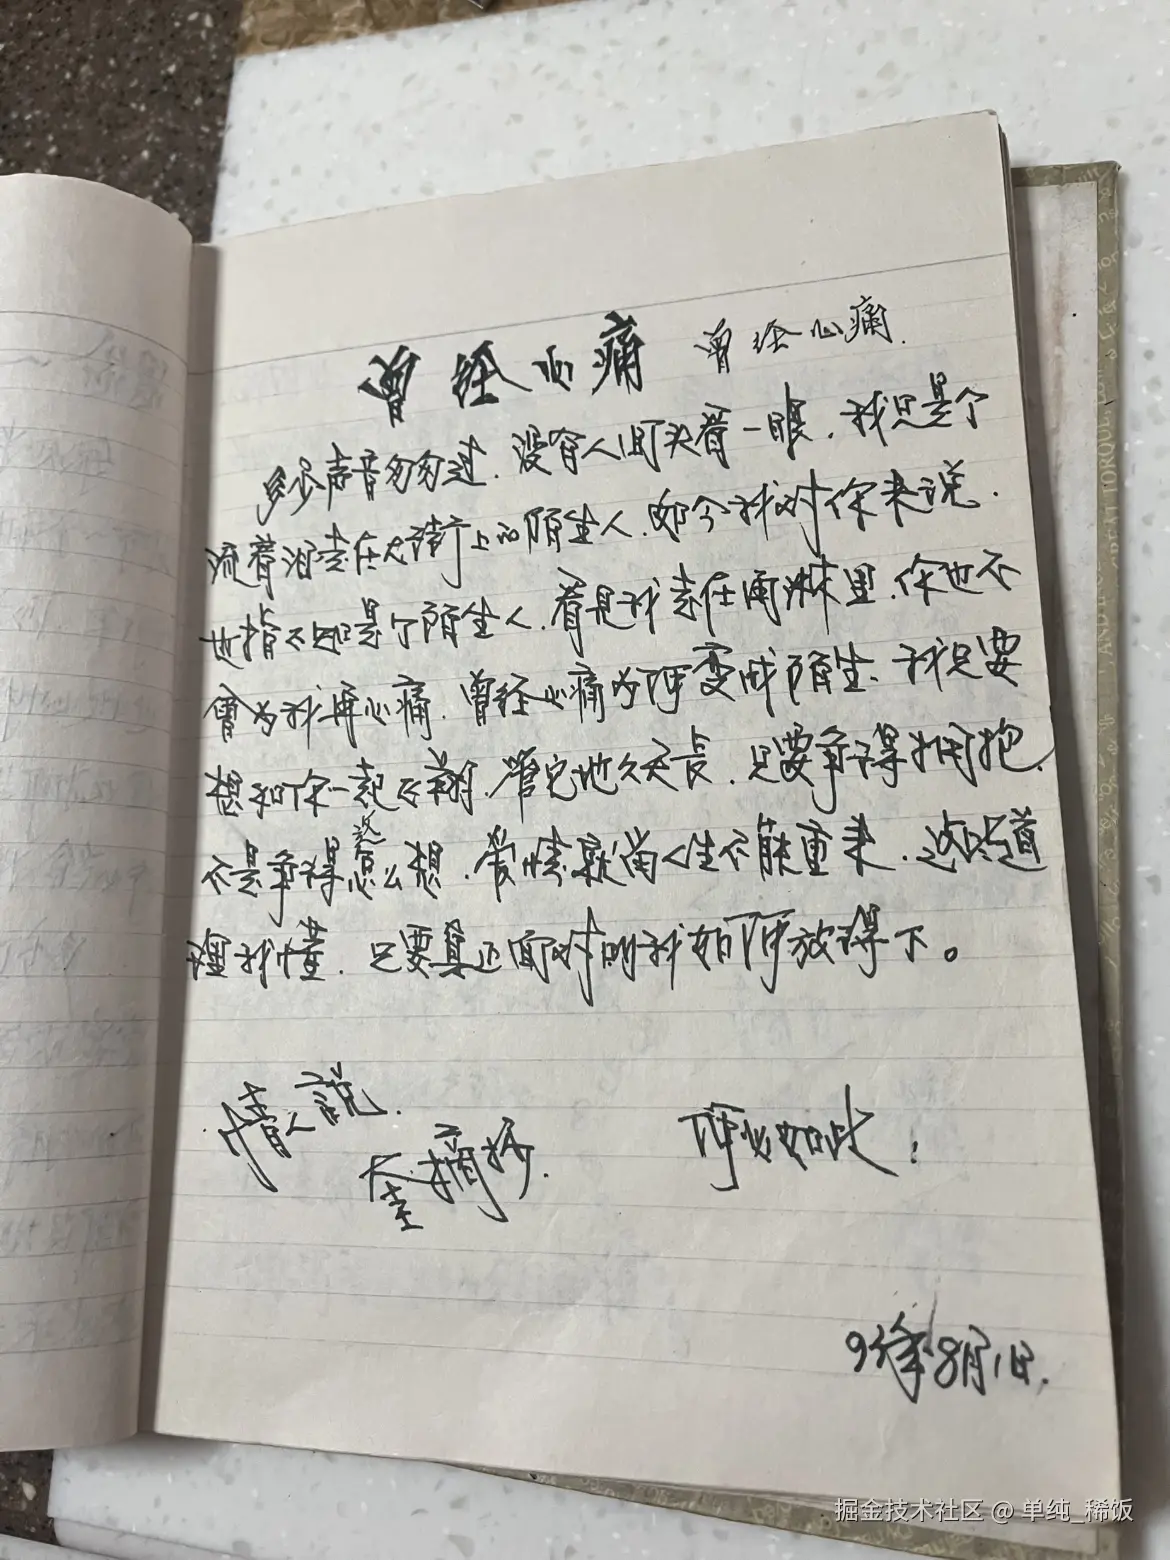 曾经心痛 曾经心痛.
多少声音匆匆过.没有人回头看一眼.我只是个
流着泪走在大街上的陌生人.如今我对你来说.
也指不过是个陌生人.看是我走在雨淋里.你也不
会为我再心痛.曾经心痛为何变成陌生、我只要
想和你一起飞翔.管它地久天长.只要争得拥抱.
不是争得怎么想.爱情就尚人生不能重来.这些道
这
理我懂.只要真正面对时我如何放得下。
情人说.
摘抄.
何必如此!
年8月1日.
掘金技术社区 @ 单纯_稀饭